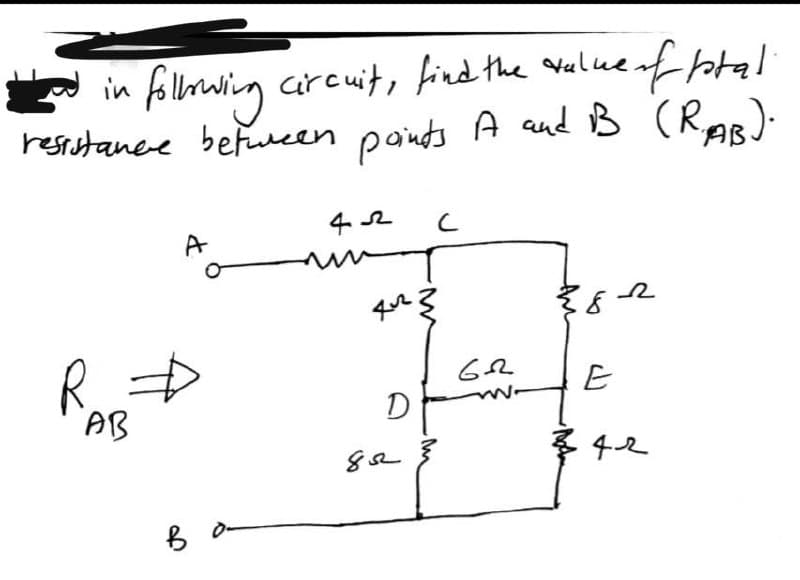 in following circuit, find the value of total
resistance between points A and B (R_AB).
4 Ω C
A
4Ω
8 Ω
6Ω
E
R_AB ⇒
D
8Ω
4Ω
B